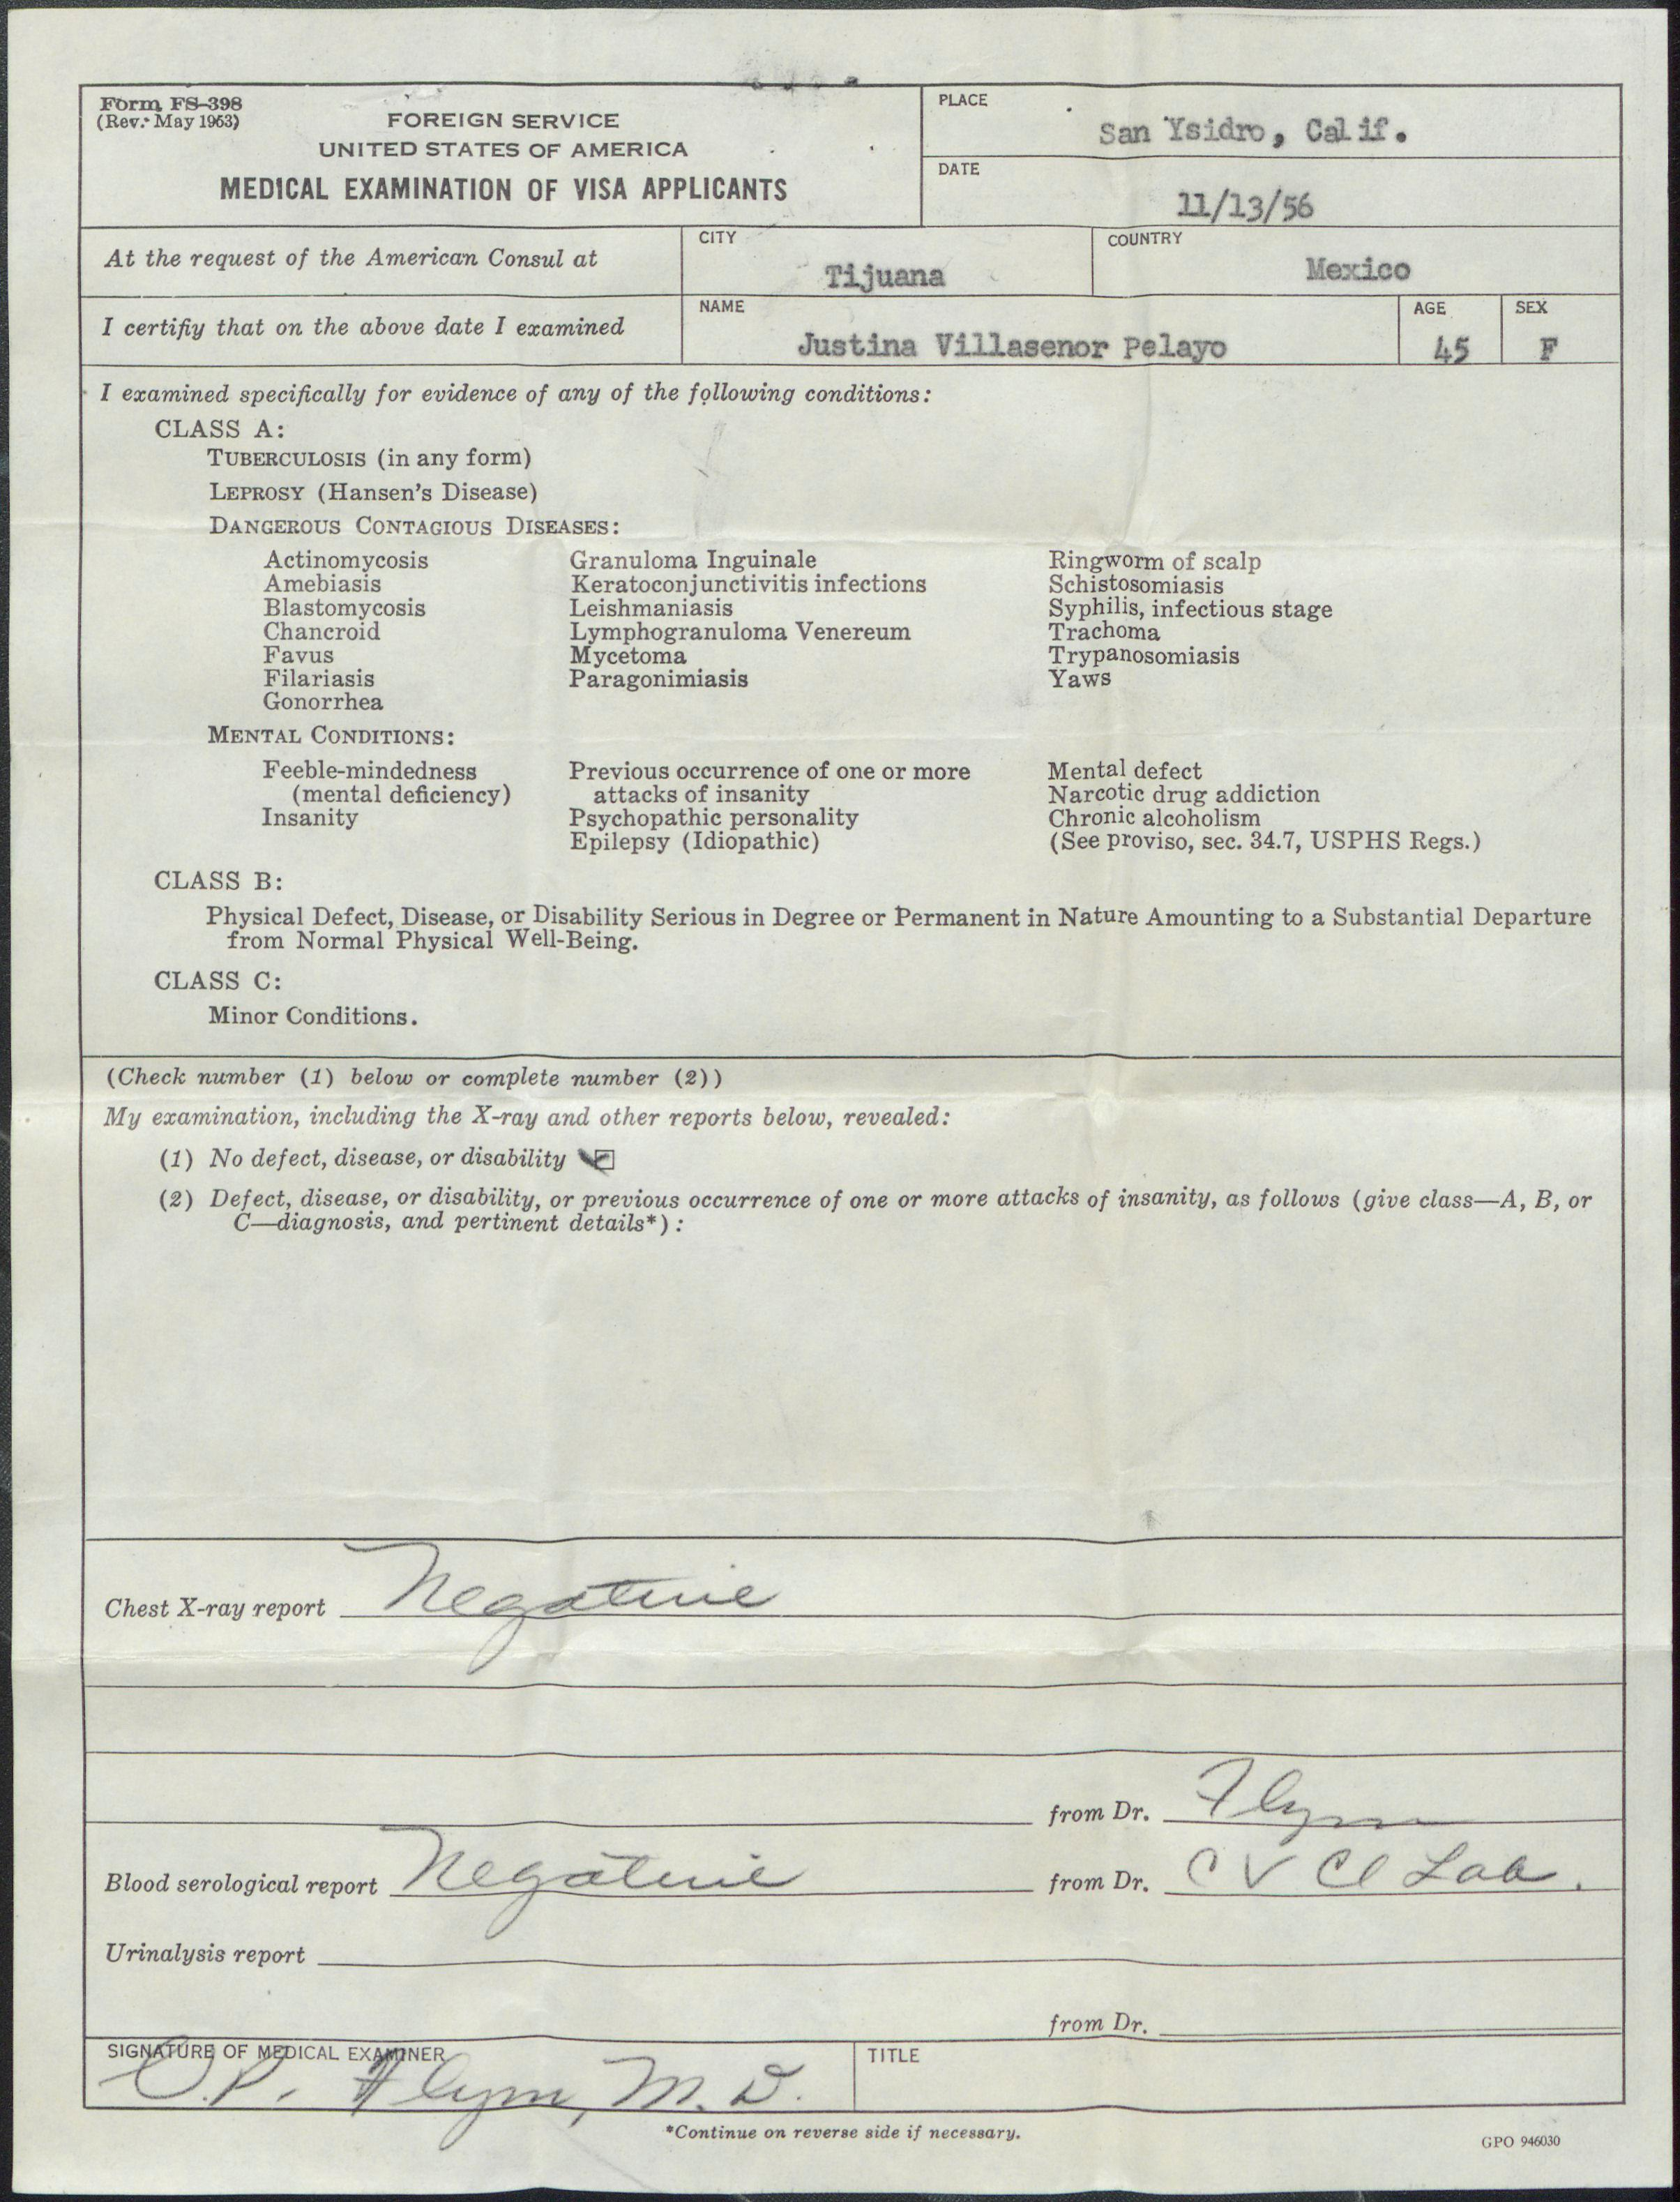 Form FS-398
(Rev. May 1953)
FOREIGN SERVICE
UNITED STATES OF AMERICA
MEDICAL EXAMINATION OF VISA APPLICANTS
PLACE
San Ysidro, Calif.
DATE
11/13/56
At the request of the American Consul at
CITY
Tijuana
COUNTRY
Mexico
I certify that on the above date I examined
NAME
Justina Villasenor Pelayo
AGE
45
SEX
F
I examined specifically for evidence of any of the following conditions:
CLASS A:
TUBERCULOSIS (in any form)
LEPROSY (Hansen's Disease)
DANGEROUS CONTAGIOUS DISEASES:
Actinomycosis
Amebiasis
Blastomycosis
Chancroid
Favus
Filariasis
Gonorrhea
Granuloma Inguinale
Keratoconjunctivitis infections
Leishmaniasis
Lymphogranuloma Venereum
Mycetoma
Paragonimiasis
Ringworm of scalp
Schistosomiasis
Syphilis, infectious stage
Trachoma
Trypanosomiasis
Yaws
MENTAL CONDITIONS:
Feeble-mindedness
(mental deficiency)
Insanity
Previous occurrence of one or more
attacks of insanity
Psychopathic personality
Epilepsy (Idiopathic)
Mental defect
Narcotic drug addiction
Chronic alcoholism
(See proviso, sec. 34.7, USPHS Regs.)
CLASS B:
Physical Defect, Disease, or Disability Serious in Degree or Permanent in Nature Amounting to a Substantial Departure
from Normal Physical Well-Being.
CLASS C:
Minor Conditions.
(Check number (1) below or complete number (2))
My examination, including the X-ray and other reports below, revealed:
(1) No defect, disease, or disability
(2) Defect, disease, or disability, or previous occurrence of one or more attacks of insanity, as follows (give class—A, B, or
C—diagnosis, and pertinent details*):
Chest X-ray report Negative
from Dr. Flynn
Blood serological report Negative from Dr. C V Cl Lab.
Urinalysis report
from Dr.
SIGNATURE OF MEDICAL EXAMINER
O.P. Flynn, M.D.
TITLE
*Continue on reverse side if necessary.
GPO 946030